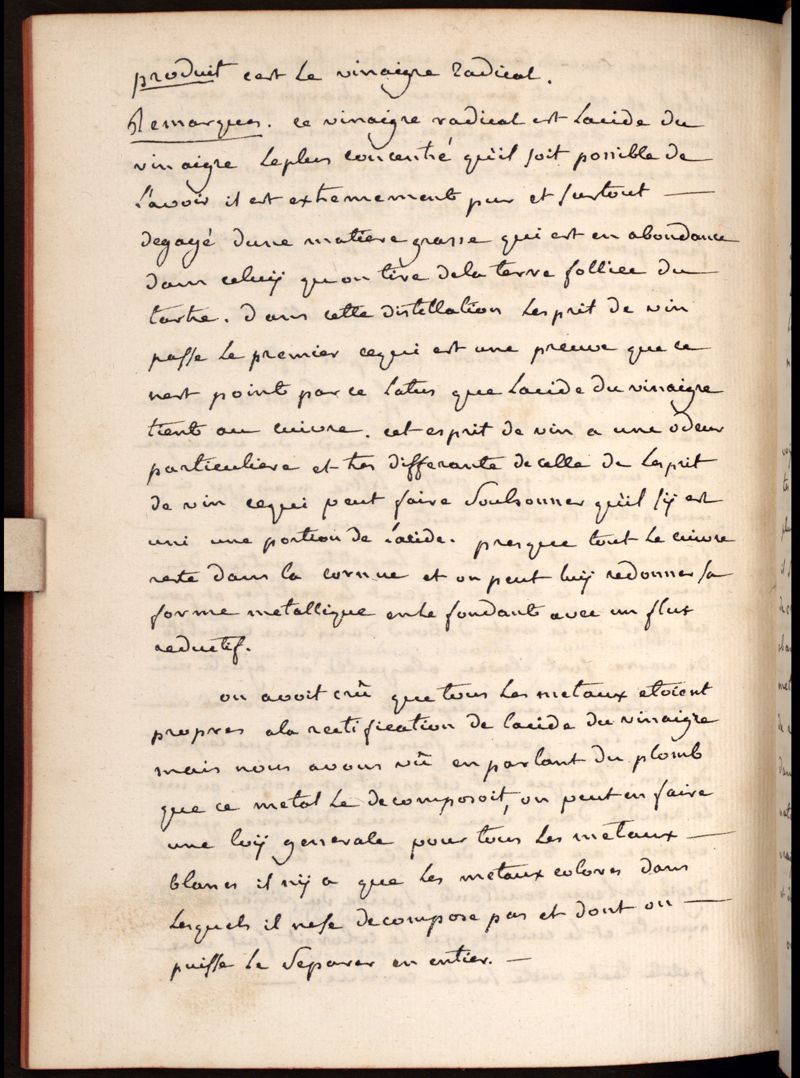 produit cest le vinaigre radical.
Remarques. ce vinaigre radical est lacide du
vinaigre leplus concentré quil soit possible de
l'avoir il est extremement pur et surtout —
degagé dune matiere grasse qui est en abondance
dans celuÿ quon tire dela terre folliee du
tartre. dans cette distillation lesprit de vin
passe le premier cequi est une preuve que ce
nest point par ce latus que lacide du vinaigre
tient au cuivre. cet esprit de vin a une odeur
particuliere et tres differante de celle de lesprit
de vin cequi peut faire soubsonner quil sÿ est
uni une portion de l'acide. presque tout le cuivre
reste dans la cornue et on peut luÿ redonner sa
forme metallique enle fondant avec un flux
reductif.
on avoit crû que tous les metaux etoient
propres ala rectification de lacide du vinaigre
mais nous avons vû en parlant du plomb
que ce metal le decomposoit, on peut en faire
une loÿ generale pour tous les metaux —
blancs il nÿ a que les metaux colorés dans
lesquels il nese decompose pas et dont on —
puisse le separer en entier. —